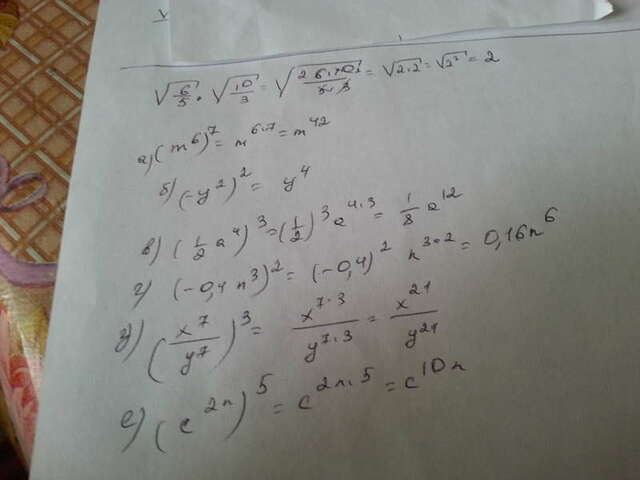 √(6/5) · √(10/3) = √(2 6·10 2/5·3) = √(2·2) = √(2²) = 2
а) (m⁶)⁷ = m⁶·⁷ = m⁴²
б) (-y²)² = y⁴
в) (1/2 a⁴)³ = (1/2)³ a⁴·³ = 1/8 a¹²
г) (-0,4 n³)² = (-0,4)² n³·² = 0,16n⁶
д) (x⁷/y⁷)³ = x⁷·³/y⁷·³ = x²¹/y²¹
е) (c²ⁿ)⁵ = c²ⁿ·⁵ = c¹⁰ⁿ